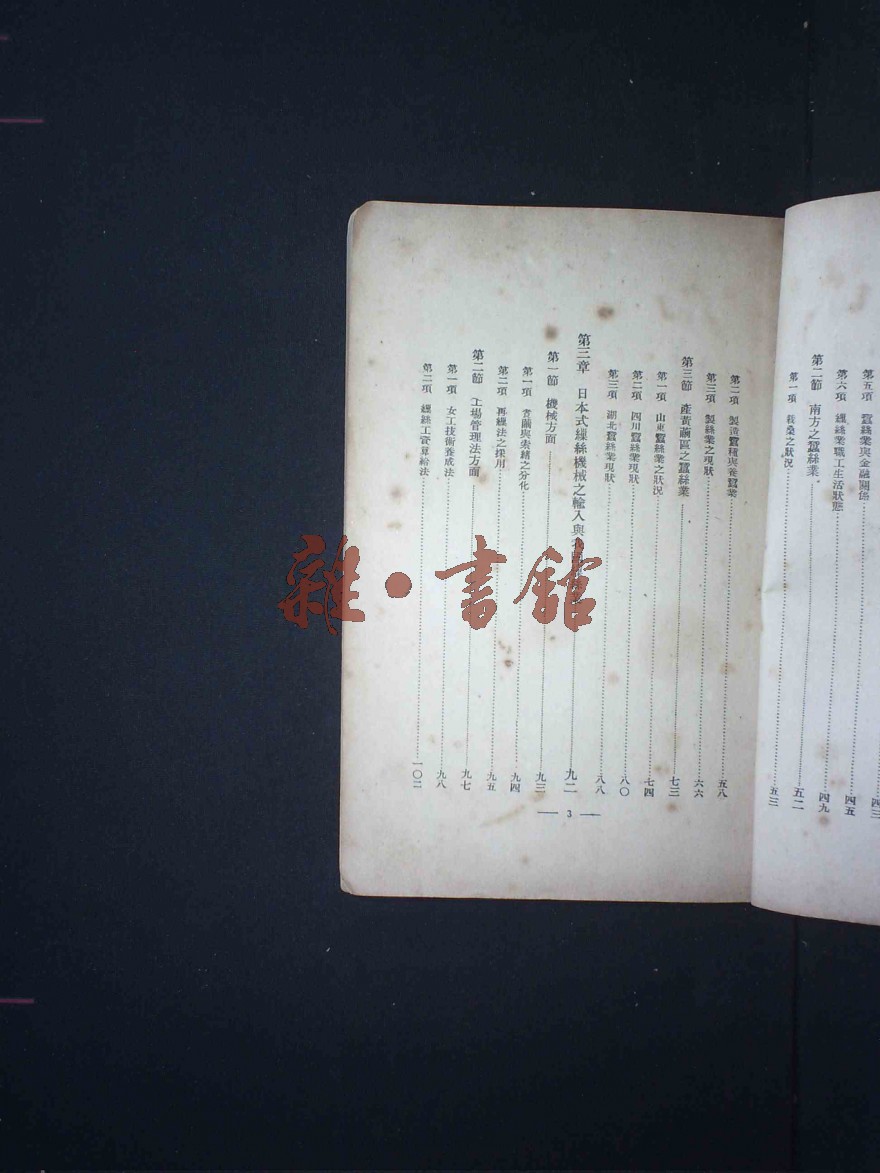 第五項 蠶絲業與金融關係 四三
第六項 繅絲業職工生活狀態 四五
第二節 南方之蠶絲業 四九
第一項 栽桑之狀況 五二
五三
第二項 製造蠶種與養蠶業 五八
第三項 製絲業之現狀 六六
第三節 產黃繭區之蠶絲業 七三
第一項 山東蠶絲業之狀況 七四
第二項 四川蠶絲業現狀 八〇
第三項 湖北蠶絲業現狀 八八
第三章 日本式繅絲機械之輸入與 九二
第一節 機械方面 九三
第一項 煮繭與索緒之分化 九四
第二項 再繅法之採用 九五
第二節 工場管理法方面 九七
第一項 女工技術養成法 九八
第二項 繅絲工資算給法 一〇二
3
雜·書館